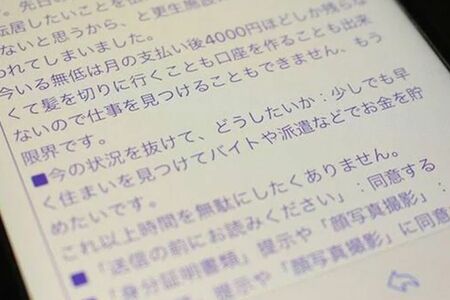 。先日の
転居したいことを伝
ないと思うから、と更生施設
われてしまいました。
今いる無低は月の支払い後4000円ほどしか残らな
くて髪を切りに行くことも口座を作ることも出来
ないので仕事を見つけることもできません、もう
限界です。
■今の状況を抜けて、どうしたいか：少しでも早
く住まいを見つけてバイトや派遣などでお金を貯
めたいです。
これ以上時間を無駄にしたくありません。
■「送信の前にお読みください」：同意する
■「身分証明書類」提示や「顔写真撮影」：
「身分証明書類」提示や「顔写真撮影」に同意